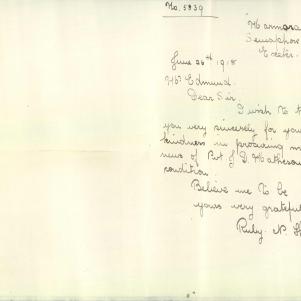 No. 5939
Semaphore
Exeter
June 26th 1918
Mr Edmund.
Dear Sir,
I wish to t
you very sincerely for you
kindness in procuring m
news of Pvt J. D. Matheson
condition
Believe me to be
yours very grateful
Ruby N.